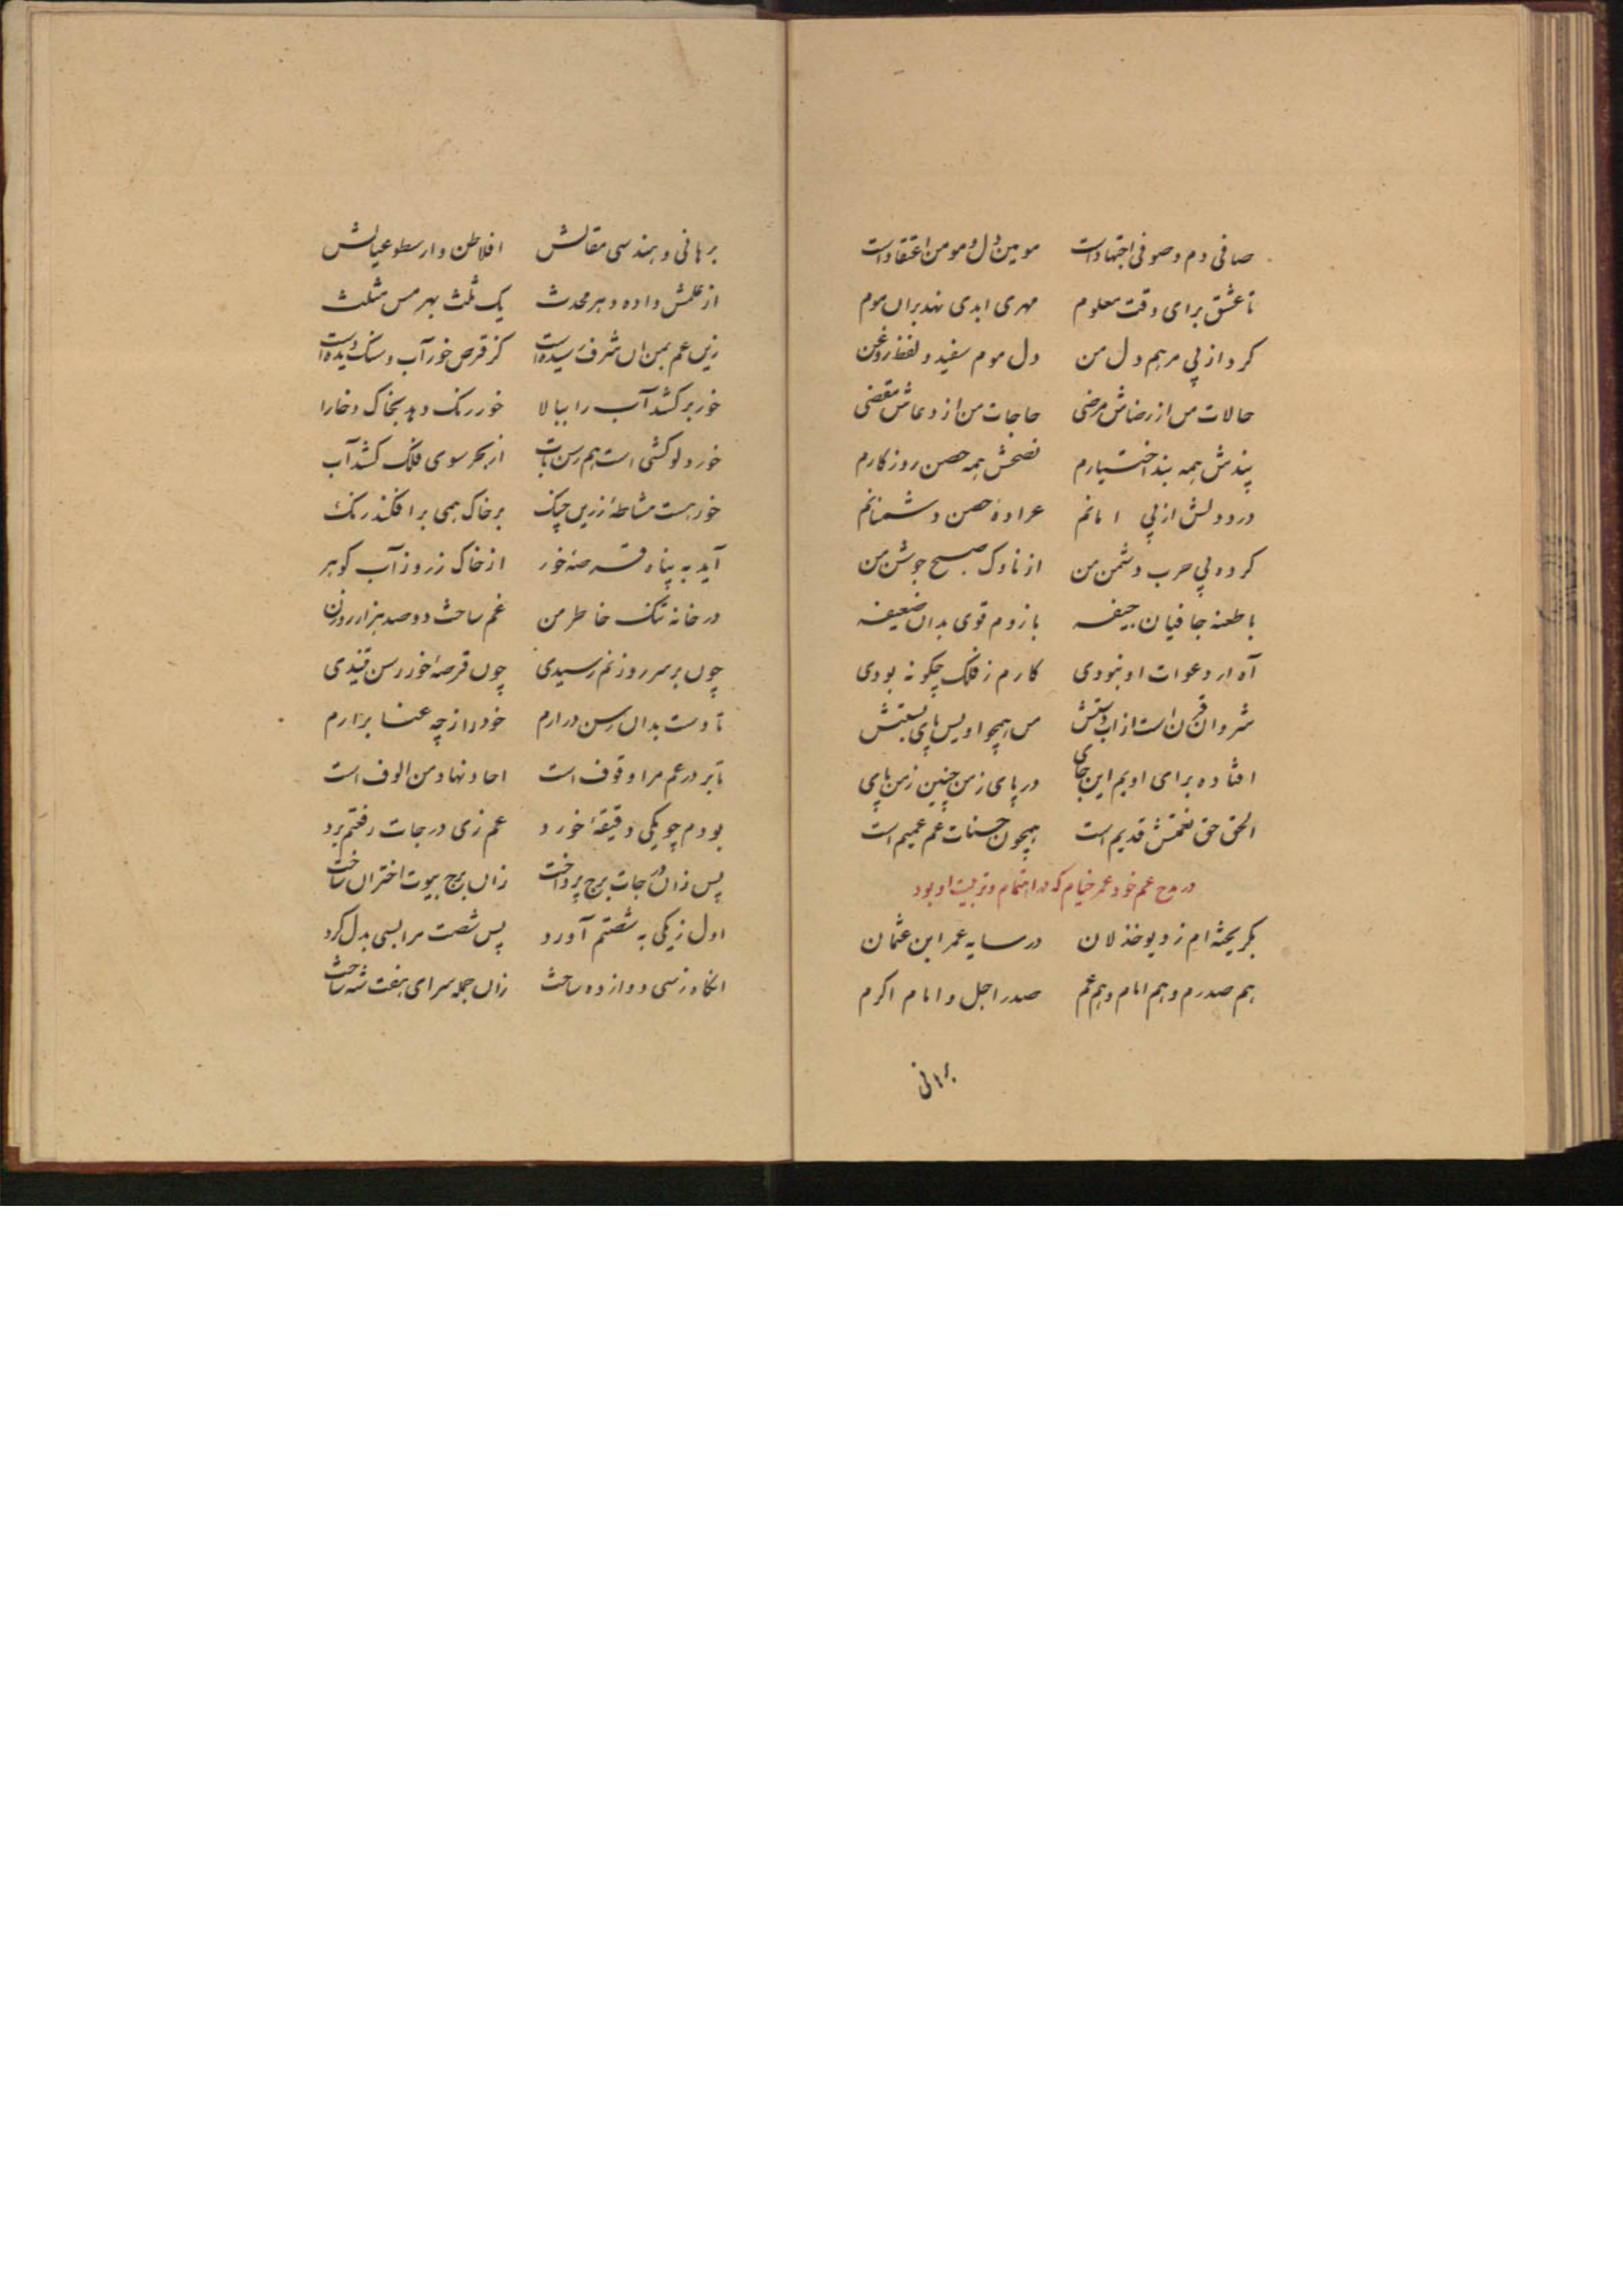 صافی دم و صوفی اجتهاد است مومین دل و مومن اعتقاد است
تا عشق برای وقت معلوم مهری ابدی نهد بران موم
کرد از پی مرهم دل من دل موم سفید و لفظ روغن
حالات من از رضاش مرضی حاجات من از دعاش مقضی
پندش همه بند اختیارم نصحش همه حصن روزکارم
درد دلش از پی امانم عراده حصن دشمنانم
کرده پی حرب دشمن من از ناوک صبح جوشن من
با طعنه جافیان جیفه بازوم قوی بدان ضعیفه
آه ار دعوات او نبودی کارم ز فلک چکونه بودی
شروان قرن است از آب دستش من همچو اویس پای بستش
افتاده برای اویم این جای در پای زمن چنین زمن پای
الحق حق نعمتش قدیم است همچون حسنات عم عمیم است
در مدح عم خود عمر خیام که در اهتمام و تربیت او بود
بکریخته ام ز دیو خذلان در سایه عمر ابن عثمان
هم صدرم و هم امام و هم عم صدر اجل و امام اکرم
برهانی
برهانی و هندسی مقالش افلاطن و ارسطو عیالش
از علمش داده دهر محدث یک ثلث بهرمس مثلث
زین عم بمن ان شرف رسیده است کز قرص خور آب و سنک دیده است
خور برکشد آب را ببالا خور رنک دهد بخاک و خارا
خور دلو کشی است هم رسن تاب از بحر سوی فلک کشد آب
خور هست مشاطهٔ زرین چنک بر خاک همی برافکند رنک
آید به پناه قرصه خور از خاک زر و ز آب کوهر
در خانه تنک خاطر من غم ساخت دو صد هزار روزن
چون بر سر روزنم رسیدی چون قرصهٔ خور رسن تنیدی
تا دست بدان رسن درارم خود را ز چه عنا برارم
تا بر در عم مرا وقوف است احاد نهاد من الوف است
بودم چو یکی دقیقهٔ خورد عم زی درجات رفعتم برد
پس زان درجات برج پرداخت زان برج بیوت اختران ساخت
اول ز یکی به شصتم آورد پس شصت مرا بسی بدل کرد
انکاه ز سی دوازده ساخت زان جمله سرای هفت شه ساخت